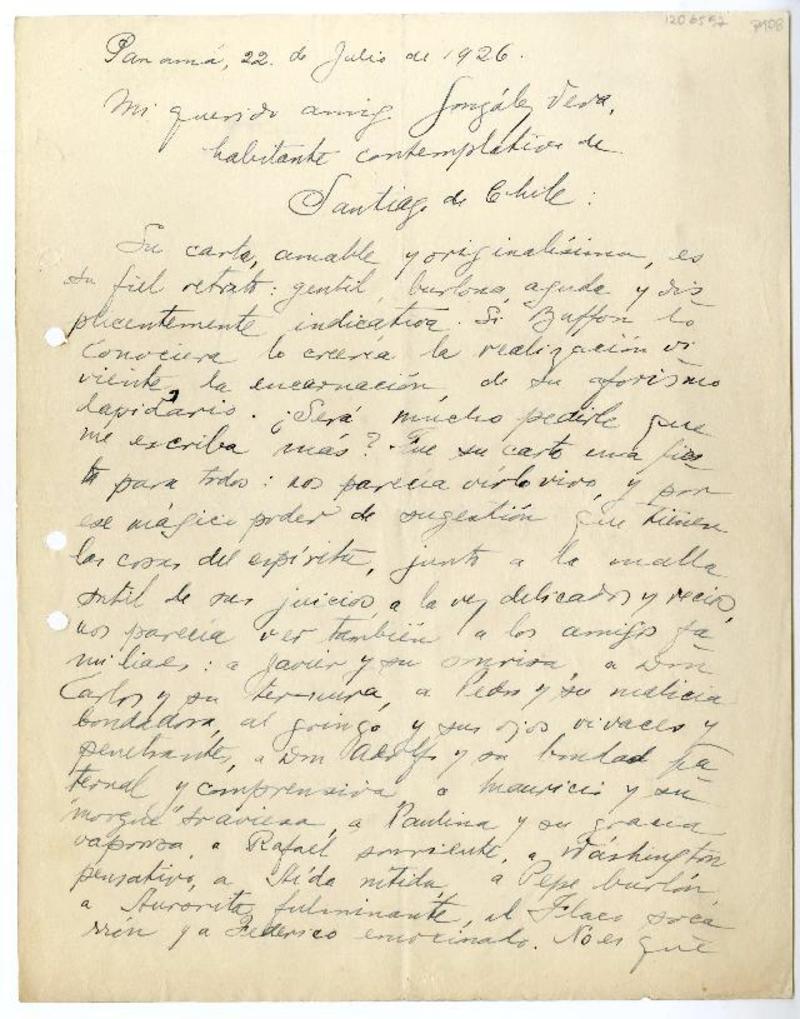 1206592 7408
Panamá, 22 de Julio de 1926.
Mi querido amigo González Vera,
habitante contemplativo de
Santiago de Chile:
Su carta, amable y originalísima, es
su fiel retrato: gentil, burlona, aguda y dis
plicentemente indicativa. Si Buffon lo
conociera lo creería la realización vi
viente, la encarnación, de su aforismo
lapidario. ¿Será mucho pedirle que
me escriba más? Fue su carta una fies
ta para todos: nos parecía vírlo vivo, y por
ese mágico poder de sugestión que tienen
las cosas del espíritu, junto a la malla
sutil de sus juicios, a la vez delicados y recios,
nos parecía ver también a los amigos fa
miliares: a Javier y su sonrisa, a Don
Carlos y su ternura, a Pedro y su malicia
bondadosa, al gringo y sus ojos vivaces y
penetrantes, a Don Adolfo y su bondad pa
ternal y comprensiva a Mauricio y su
"morgue" traviesa, a Paulina y su gracia
vaporosa, a Rafael sonriente, a Wáshington
pensativo, a Aída nítida, a Pepe burlón,
a Aurorita fulminante, al Flaco soca
rrón y a Federico emocionado. No es que